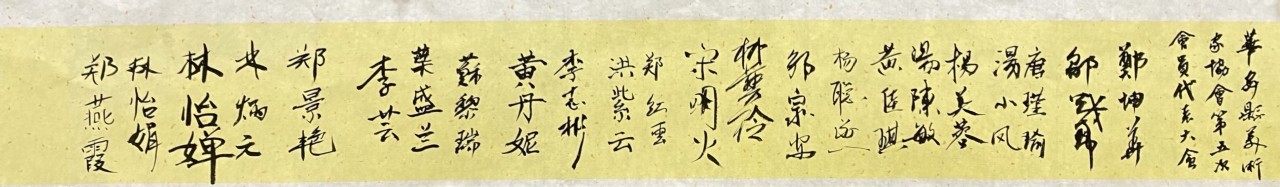 華安縣美術
家協會第五次
會員代表大會
鄭坤華
鄒戰
唐瑾瑜
湯小风
楊美蓉
湯陳敏
黄佳琪
杨聪
郑宗
林雪玲
宋明火
郑红雲
洪紫云
李志彬
黄丹妮
蘇黎瑞
葉盛兰
李芸
郑景艳
林炳元
林怡婵
林怡娟
郑燕霞